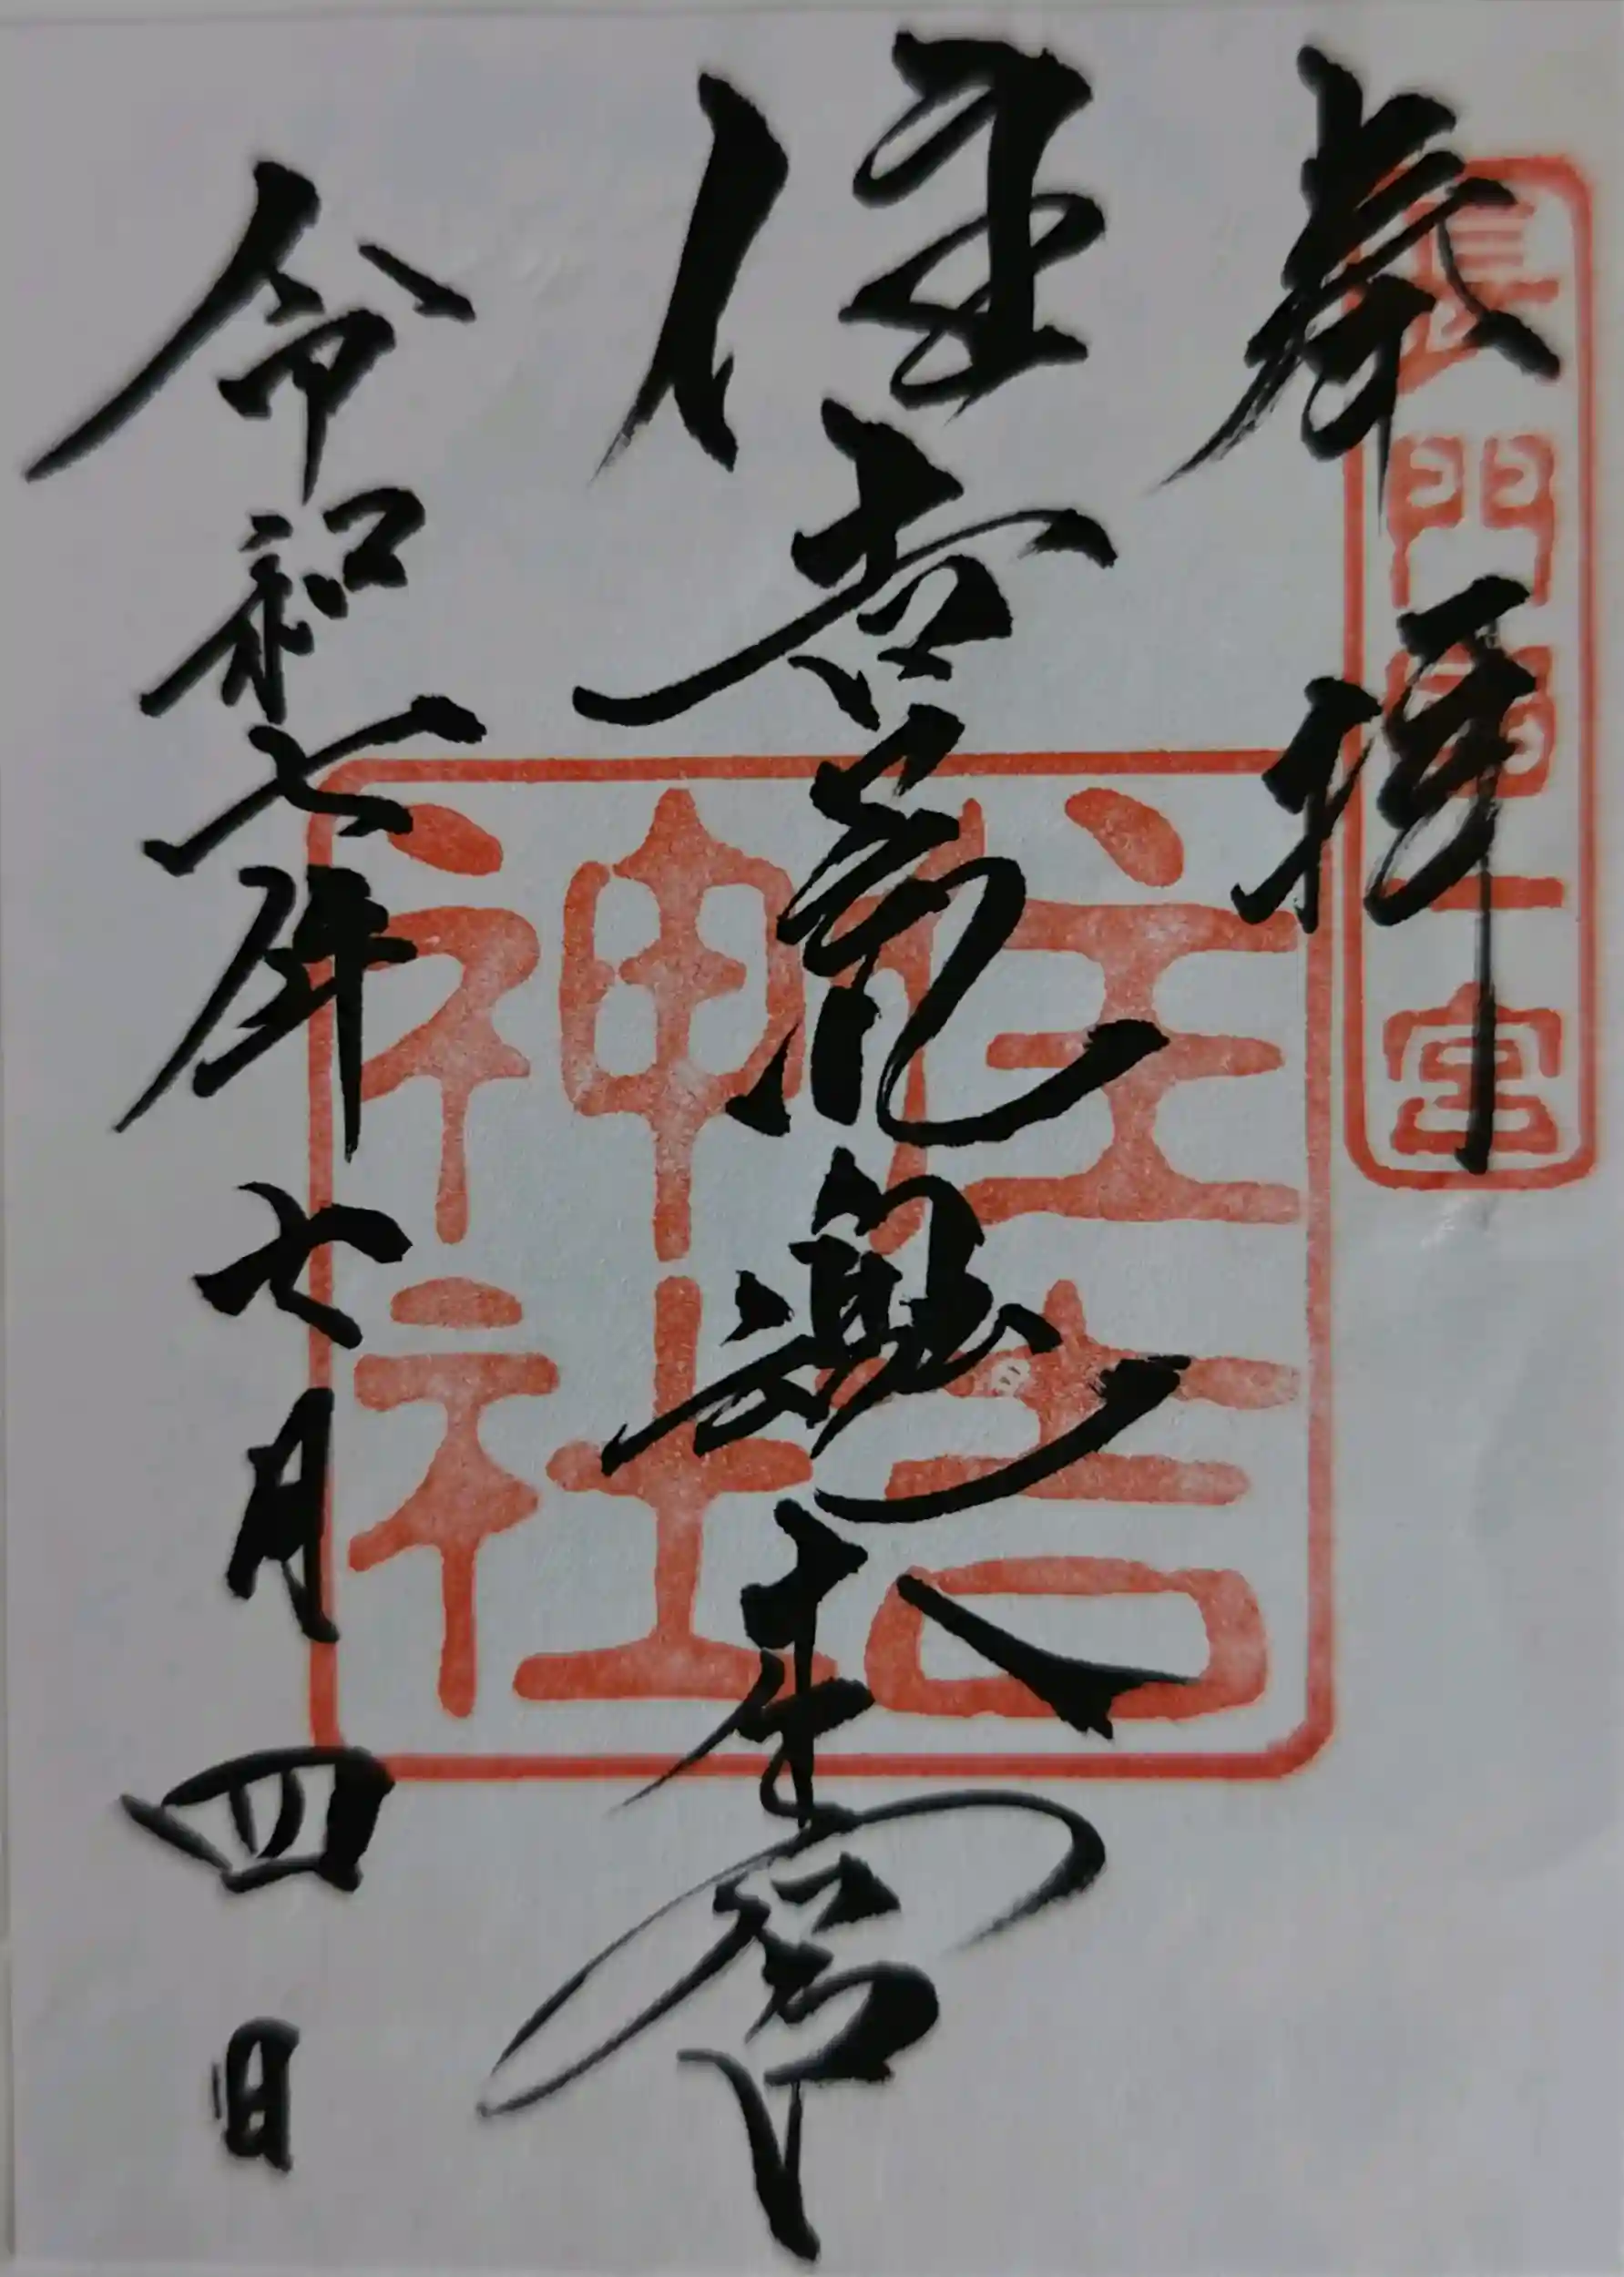 奉拝
長門國一宮
住吉荒魂本宮
住吉
神社
令和七年七月四日